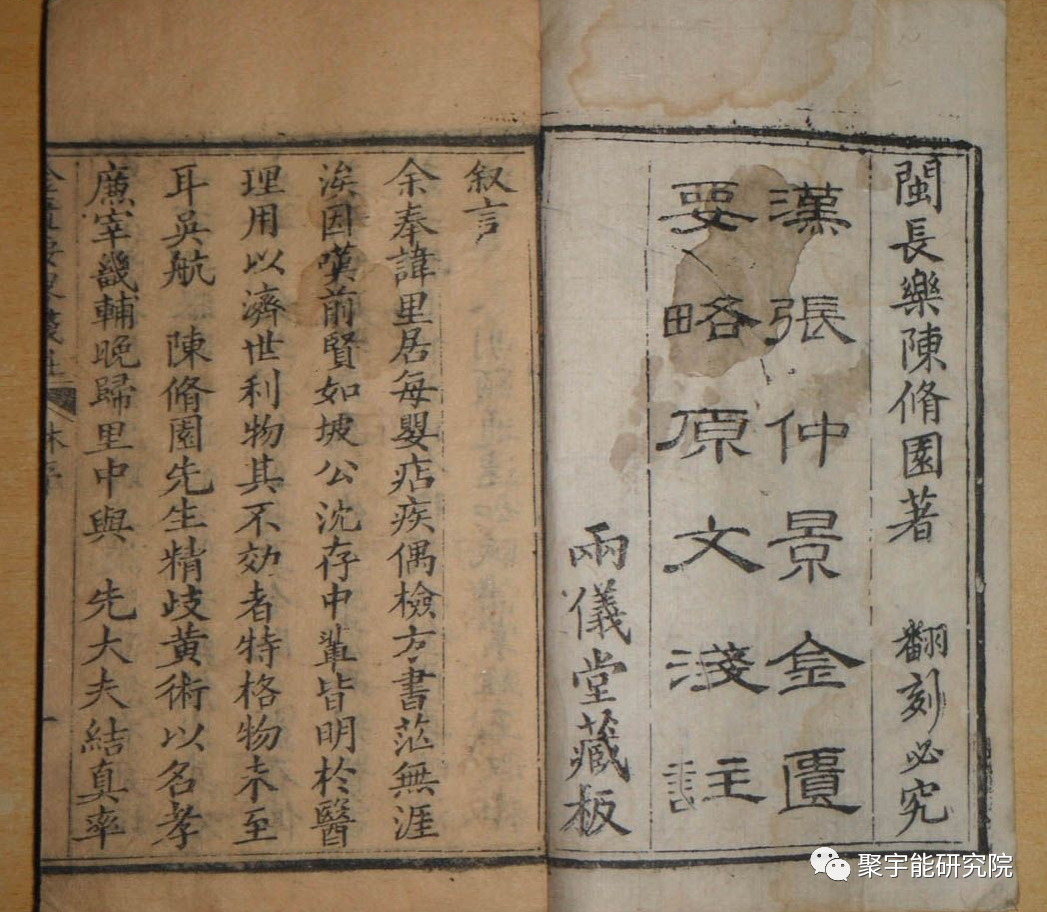 閩長樂陳脩園著 翻刻必究
漢張仲景金匱
要略原文淺註
兩儀堂藏板
叙言
余奉諱里居每嬰痁疾偶檢方書茫無涯
涘因嘆前賢如坡公沈存中輩皆明於醫
理用以濟世利物其不効者特格物未至
耳吳航 陳脩園先生精歧黃術以名孝
廉宰畿輔晚歸里中與 先大夫結真率
聚宇能研究院